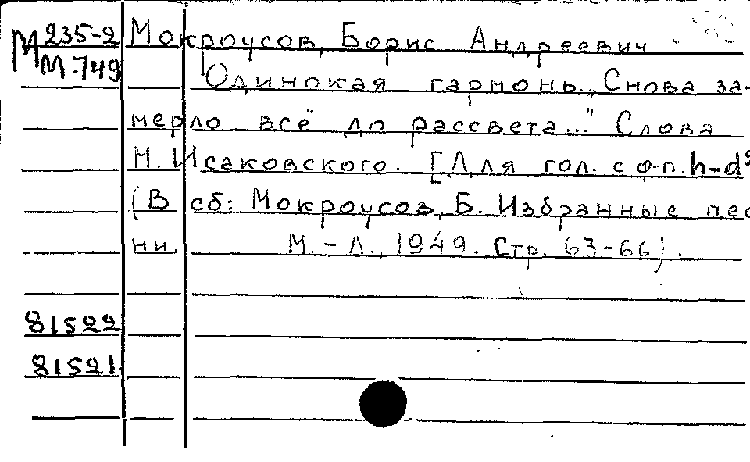 М 235-2 Мокроусов, Борис Андреевич
М-749 "Одинокая гармонь. „Снова за-
мерло всё до рассвета..." Слова
М. Исаковского. [Для гол. с ф-п. h-d²
(В сб: Мокроусов, Б. Избранные пес
ни М.-Л. 1949. Стр. 63-66).
81522
81521